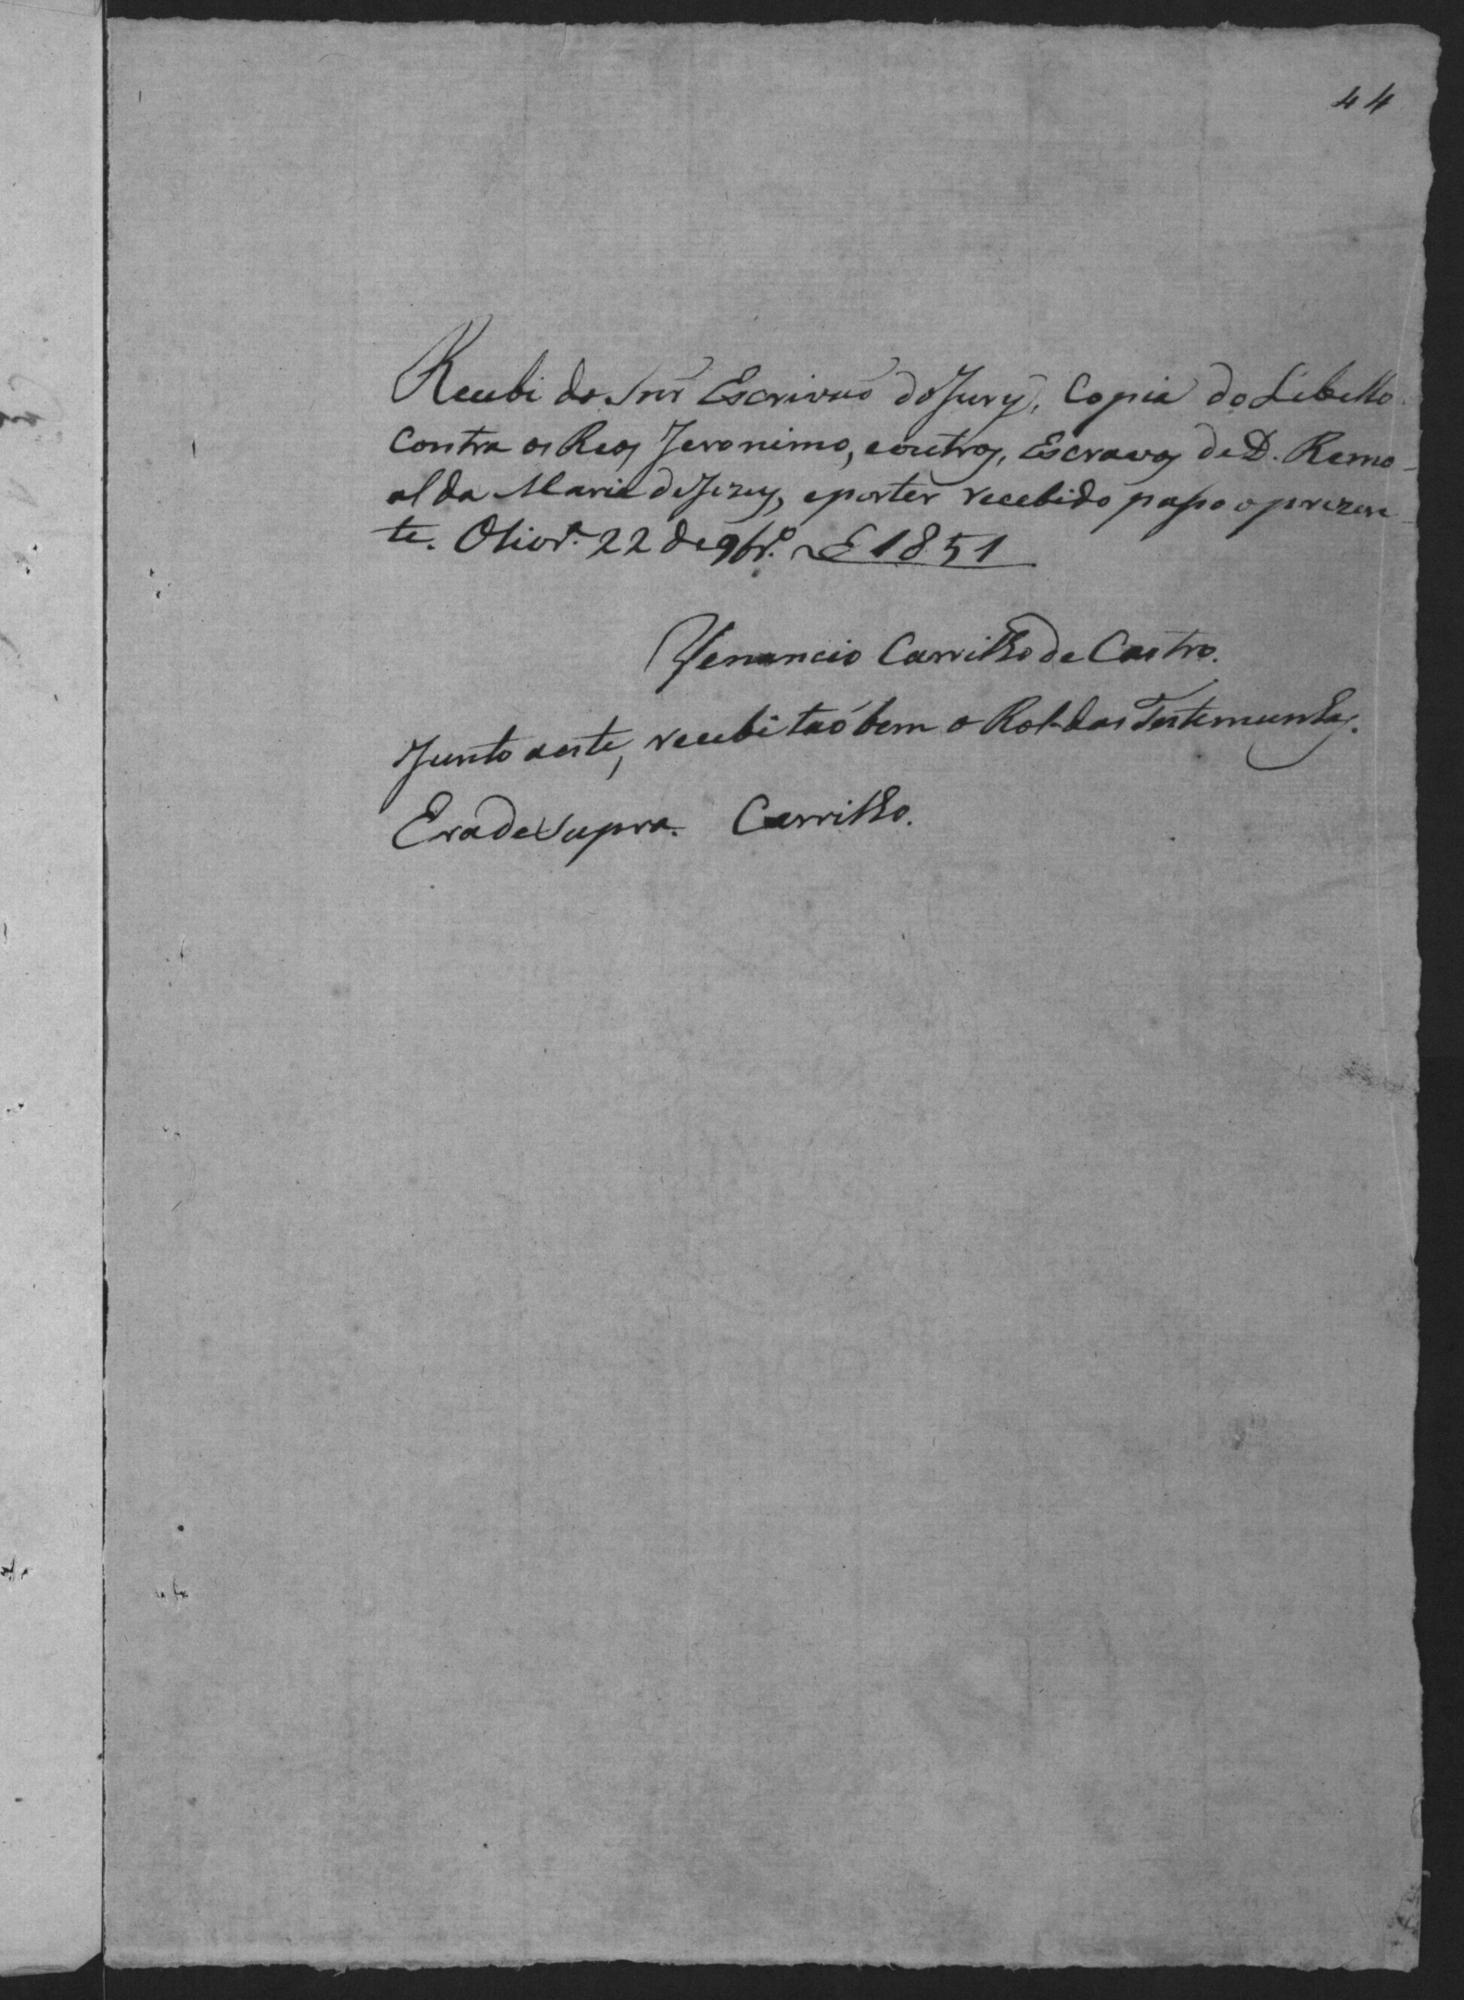 44
Recebi do Snr Escrivaõ do Jury, Copia do Libello
Contra os Reos Jeronimo, e outros, Escravos de D. Remo-
alda Maria de Jezus, e por ter recebido passo o prezen-
te. Olivr.ª 22 de 9br.º de 1851
Venancio Carrilho de Castro.
Junto a este, recebi taõbem o Rol das Testemunhas.
Era de Supra. Carrilho.